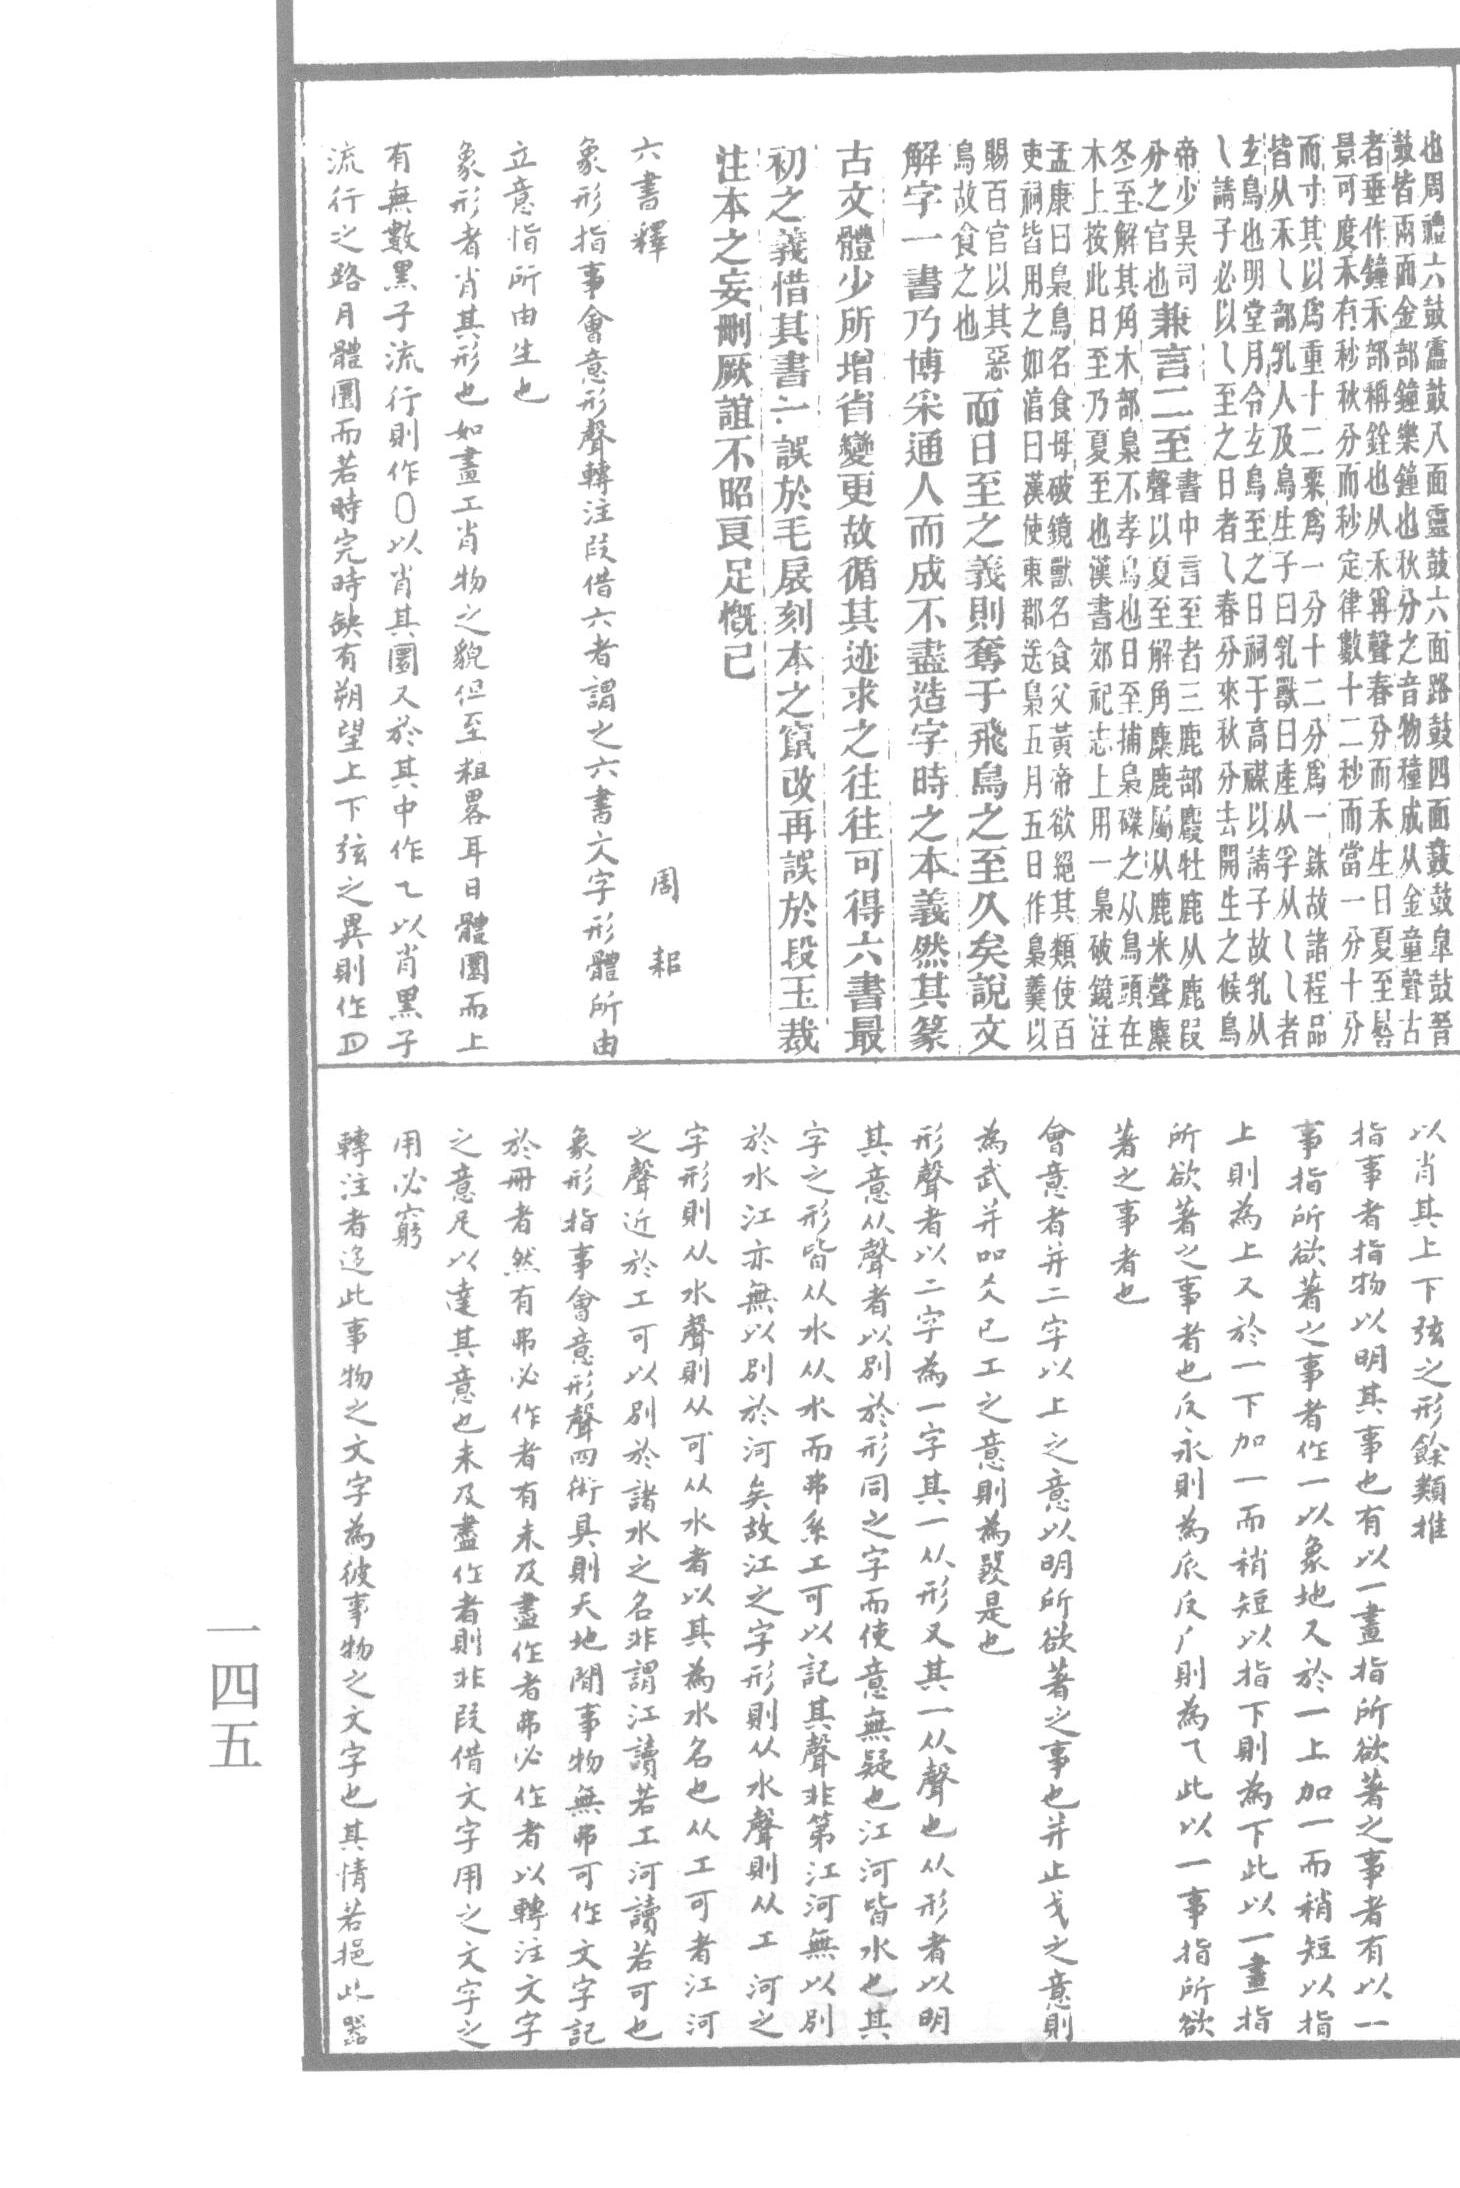 也周禮六鼓靁鼓八面靈鼓六面路鼓四面鼖鼓皐鼓晉
鼓皆兩面金部鐘樂鐘也秋分之音物種成从金童聲古
者垂作鐘禾部稱銓也从禾爯聲春分而禾生日夏至晷
景可度禾有秒秋分而秒定律數十二秒而當一分十分
而寸其以爲重十二粟爲一分十二分爲一銖故諸程品
皆从禾乚部乳人及鳥生子曰乳獸曰產从孚从乚乚者
玄鳥也明堂月令玄鳥至之日祠于高禖以請子故乳从
乚請子必以乚至之日者乚春分來秋分去開生之候鳥
帝少昊司
分之官也
兼言二至
書中言至者三鹿部麎牡鹿从鹿段
聲以夏至解角麋鹿屬从鹿米聲麋
冬至解其角木部梟不孝鳥也日至捕梟磔之从鳥頭在
木上按此日至乃夏至也漢書郊祀志上用一梟破鏡注
孟康曰梟鳥名食母破鏡獸名食父黃帝欲絕其類使百
吏祠皆用之如淳曰漢使東郡送梟五月五日作梟羹以
賜百官以其惡
鳥故食之也
而日至之義則奪于飛鳥之至久矣說文
解字一書乃博采通人而成不盡造字時之本義然其篆
古文體少所增省變更故循其迹求之往往可得六書最
初之義惜其書一誤於毛扆刻本之竄改再誤於段玉裁
注本之妄刪厥誼不昭良足慨已
六書釋
周䎽
象形指事會意形聲轉注叚借六者謂之六書文字形體所由
立意恉所由生也
象形者肖其形也如畫工肖物之貌但至粗畧耳日體圜而上
有無數黑子流行則作〇以肖其圜又於其中作乁以肖黑子
流行之路月體圜而若時完時缺有朔望上下弦之異則作
以肖其上下弦之形餘類推
指事者指物以明其事也有以一畫指所欲著之事者有以一
事指所欲著之事者作一以象地又於一上加一而稍短以指
上則為上又於一下加一而稍短以指下則為下此以一畫指
所欲著之事者也反永則為𠂢反𠂆則為乁此以一事指所欲
著之事者也
會意者并二字以上之意以明所欲著之事也并止戈之意則
為武并叩爻已工之意則為㗊是也
形聲者以二字為一字其一从形又其一从聲也从形者以明
其意从聲者以別於形同之字而使意無疑也江河皆水也其
字之形皆从水从水而弗系工可以記其聲非第江河無以別
於水江亦無以別於河矣故江之字形則从水聲則从工河之
字形則从水聲則从可从水者以其為水名也从工可者江河
之聲近於工可以別於諸水之名非謂江讀若工河讀若可也
象形指事會意形聲四術具則天地閒事物無弗可作文字記
於冊者然有弗必作者有未及盡作者弗必作者以轉注文字
之意足以達其意也未及盡作者則非叚借文字用之文字之
用必窮
轉注者迻此事物之文字為彼事物之文字也其情若挹此器
一四五